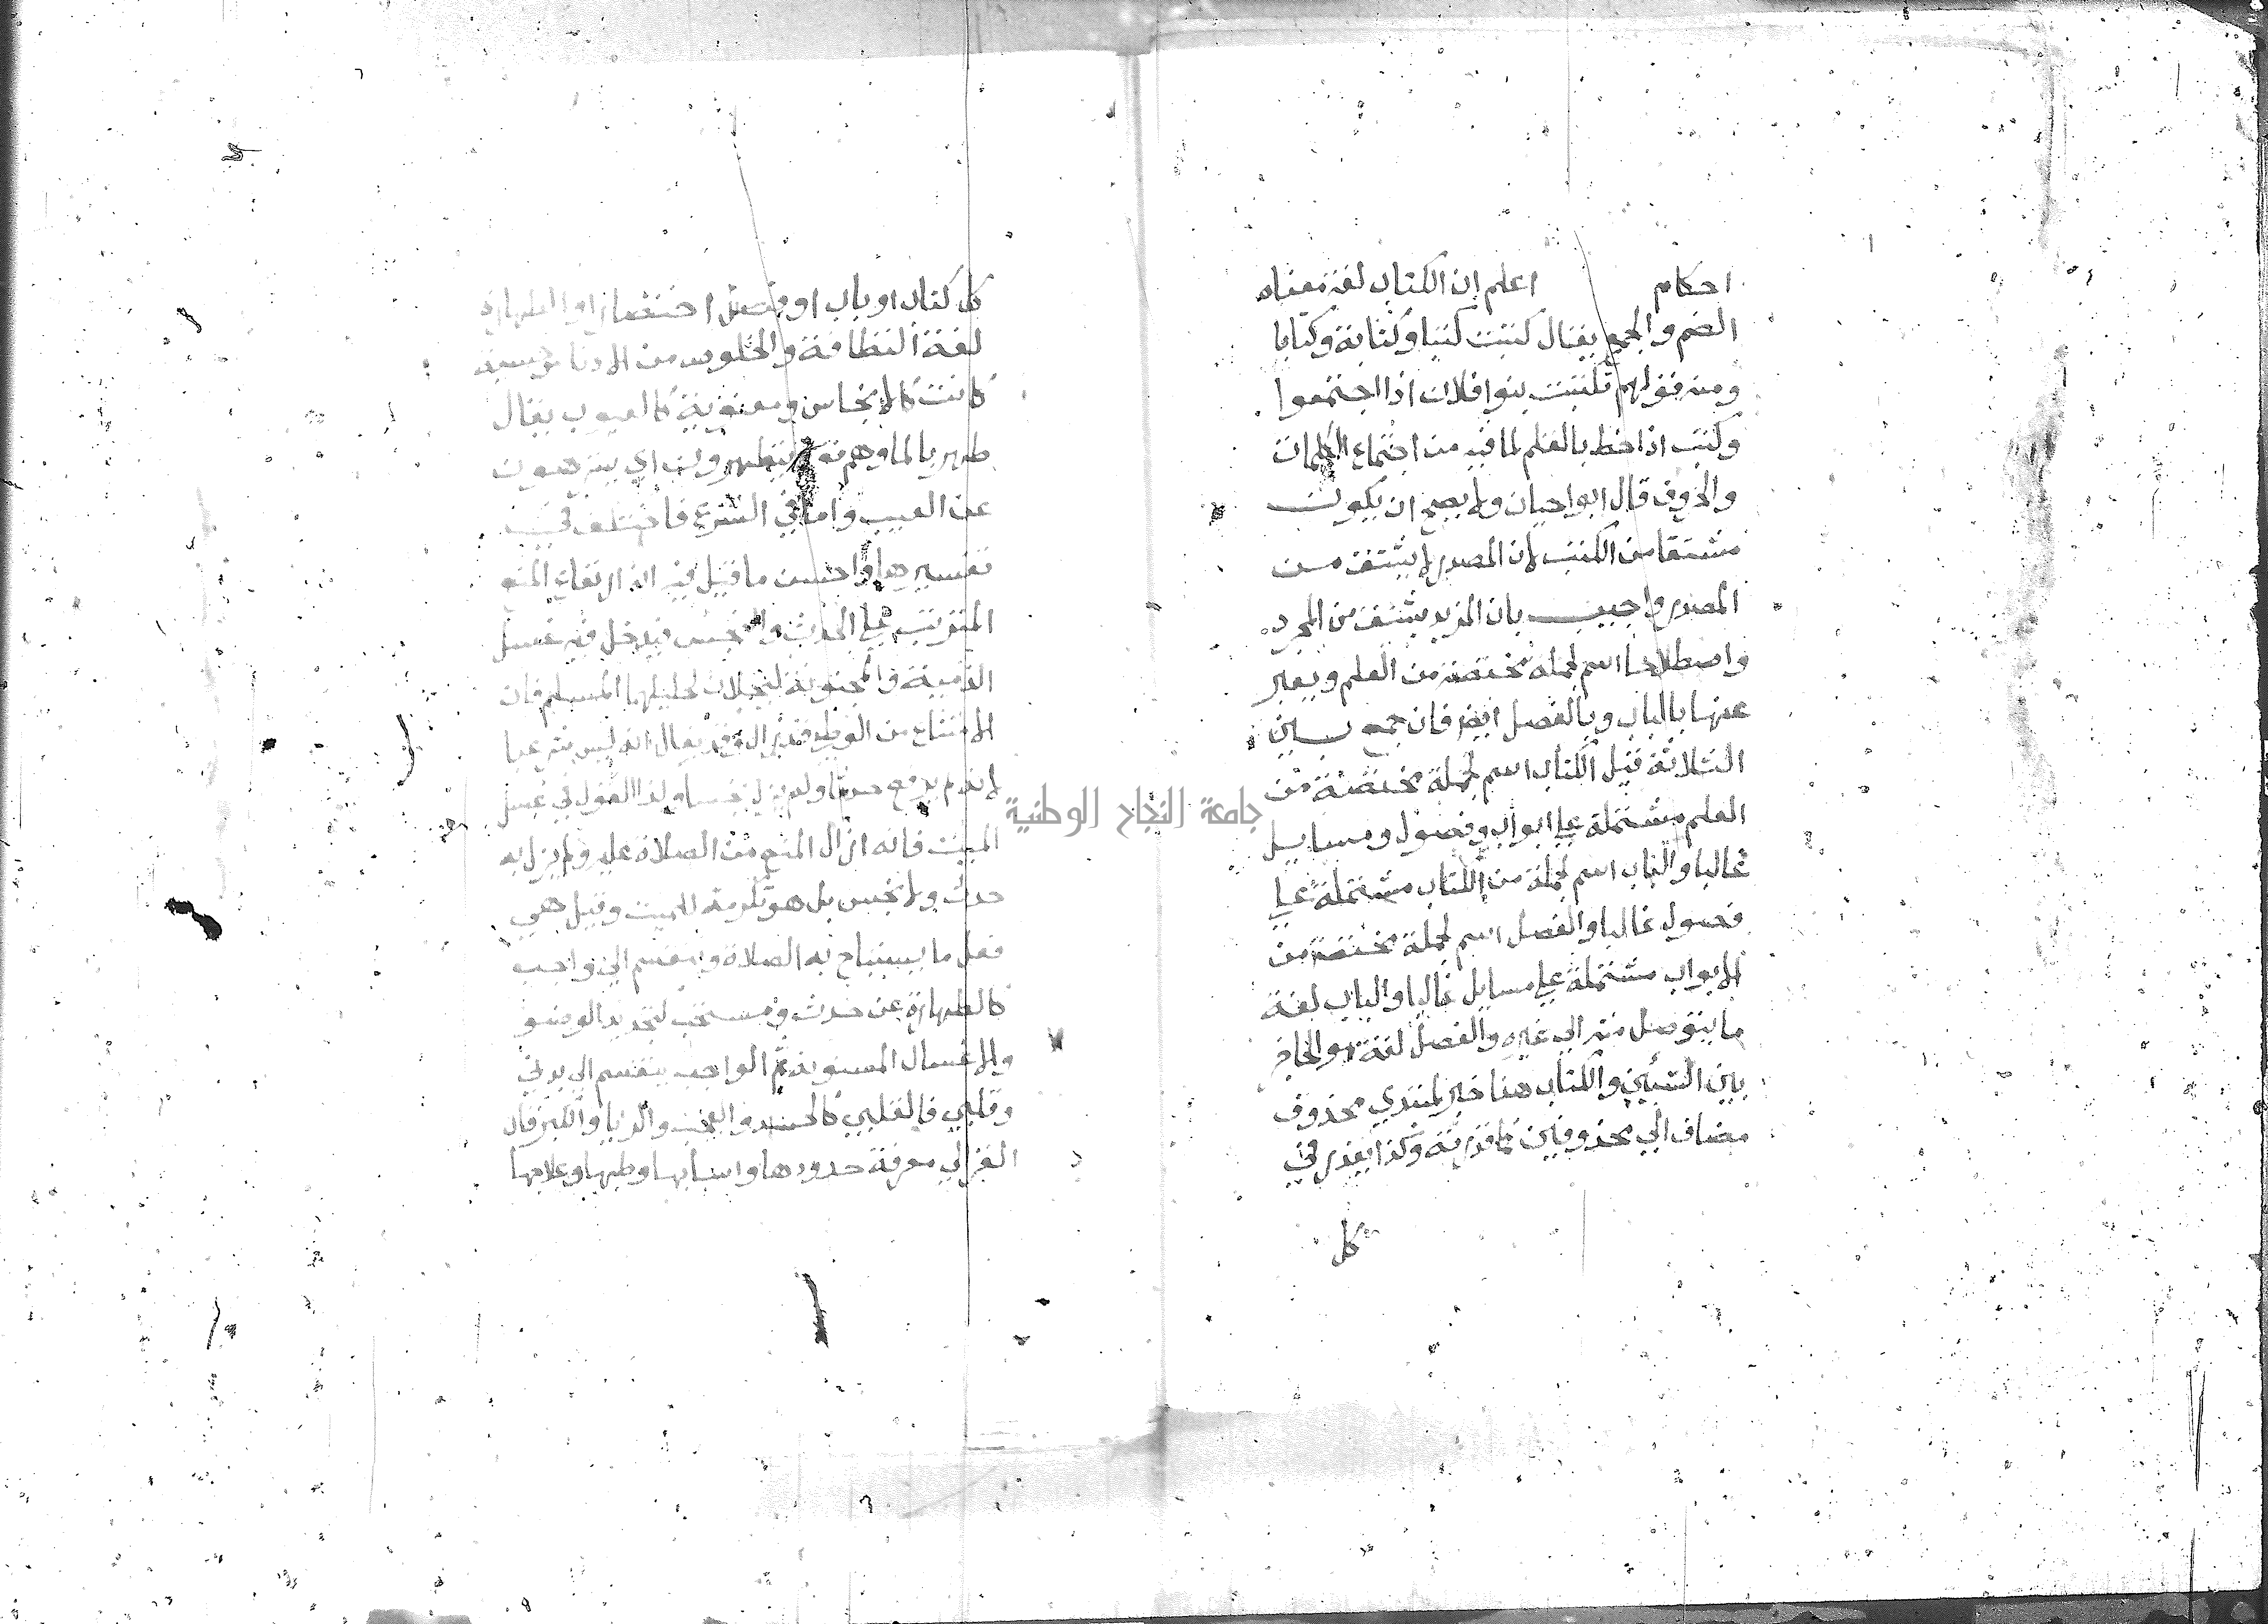 احكام اعلم ان الكتاب لغة معناه
الضم والجمع يقال كتبت كتبا وكتابة وكتابا
ومنه قولهم تكتبت بنوا فلان اذا اجتمعوا
وكتب اذا خط بالقلم لما فيه من اجتماع الكلمات
والحروف قال ابوا حيان ولا يصح ان يكون
مشتقا من الكتب لان المصدر لا يشتق من
المصدر واجيب بان المزيد يشتق من المجرد
واصطلاحا اسم لجملة مختصة من العلم ويعبر
عنها بالباب وبالفصل ايضا فان جمع بين
الثلاثة قيل الكتاب اسم لجملة مختصة من
العلم مشتملة علي ابواب وفصول ومسايل
غالبا والباب اسم لجملة من الكتاب مشتملة علي
فصول غالبا والفصل اسم لجملة مختصة من
الابواب مشتملة علي مسايل غالبا والباب لغة
ما يتوصل منه الي غيره والفصل لغة هو الحاجز
بين الشيئين والكتاب هنا خبر لمبتدي محذوف
مضاف الي محذوفين كما قدرته وكذا يقدر في
كل
كل كتاب او باب او فصل اختصارا والطهارة
لغة النظافة والخلوص من الادناس حسية
كانت كالانجاس ومعنوية كالعيوب يقال
طهر بالما وهم قوم يتطهرون اي يتنزهون
عن العيب واما في الشرع فاختلف في
تفسيرها واحسن ما قيل فيه انه ارتفاع المنع
المترتب علي الحدث والنجس فيدخل فيه غسل
الذمية والمجنونة ليحلان لحليلها المسلم فان
الامتناع من الوطي قد زال وقد يقال انه ليس شرعيا
لانه لم يرفع حدثا ولم يزل نجسا وكذا القول في غسل
الميت فانه ازال المنع من الصلاة عليه ولم يزل به
حدث ولا نجس بل هو تكرمة للميت وقيل هي
فعل ما يستباح به الصلاة وينقسم الي واجب
كالطهارة عن حدث ومستحب كتجديد الوضو
والاغسال المسنونة ثم الواجب ينقسم الي بدني
وقلبي فالقلبي كالحسد والعجب والريا والكبر قال
الغزالي معرفة حدودها واسبابها وطبها وعلاجها
جامعة النجاح الوطنية